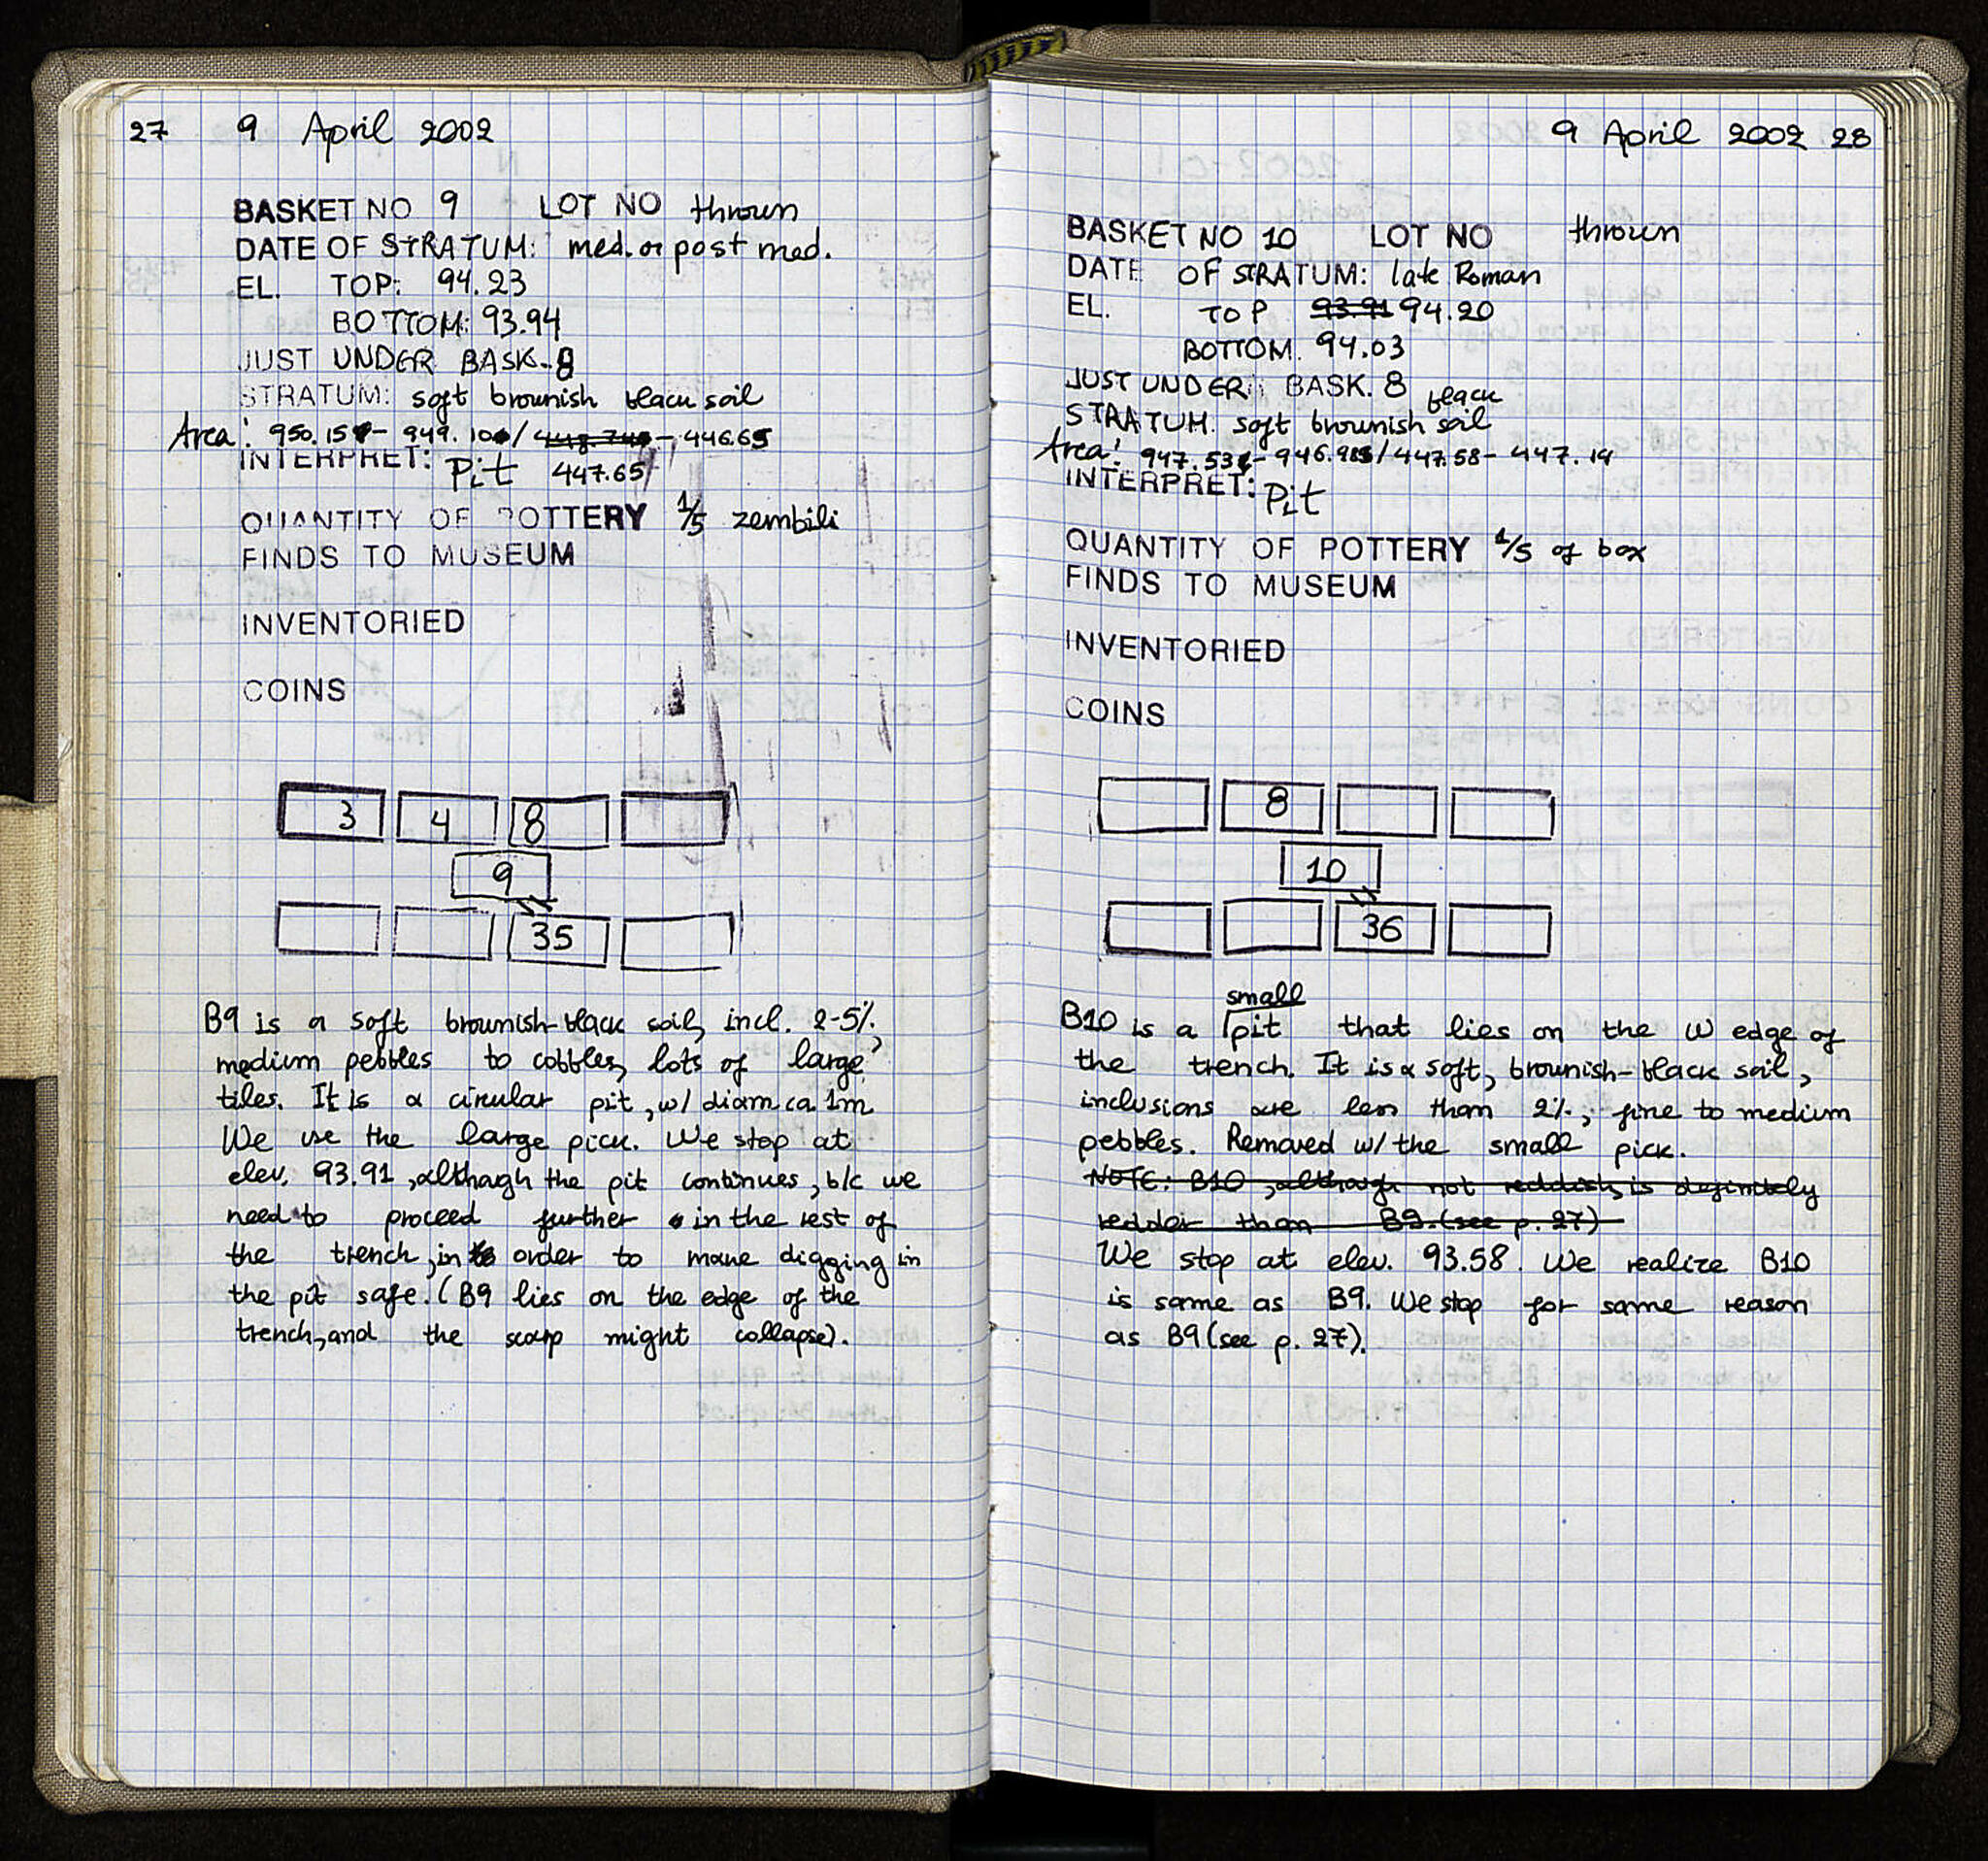 27 9 April 2002
BASKET NO 9 LOT NO thrown
DATE OF STRATUM: med. or post med.
EL. TOP: 94.23
BOTTOM: 93.94
JUST UNDER BASK. 8
STRATUM: soft brownish black soil
Area: 950.15 - 949.10 / - 446.65
INTERPRET: Pit 447.65
QUANTITY OF POTTERY 1/5 zembili
FINDS TO MUSEUM
INVENTORIED
COINS
3 4 8
9
35
B9 is a soft brownish-black soil, incl. 2-5%
medium pebbles to cobbles, lots of large
tiles. It is a circular pit, w/ diam ca 1m
We use the large pick. We stop at
elev. 93.91, although the pit continues, b/c we
need to proceed further in the rest of
the trench, in order to make digging in
the pit safe. (B9 lies on the edge of the
trench, and the scarp might collapse).
9 April 2002 28
BASKET NO 10 LOT NO thrown
DATE OF STRATUM: late Roman
EL. TOP 93.91 94.20
BOTTOM. 94.03
JUST UNDER BASK. 8
STRATUM. soft brownish black soil
Area: 947.53 - 946.98 / 447.58 - 447.14
INTERPRET: Pit
QUANTITY OF POTTERY 1/5 of box
FINDS TO MUSEUM
INVENTORIED
COINS
8
10
36
B10 is a small pit that lies on the W edge of
the trench. It is a soft, brownish-black soil,
inclusions are less than 2%, fine to medium
pebbles. Removed w/ the small pick.
NOTE: B10, although not reddish, is definitely
redder than B9. (see p. 27)
We stop at elev. 93.58. We realize B10
is same as B9. We stop for same reason
as B9 (see p. 27).